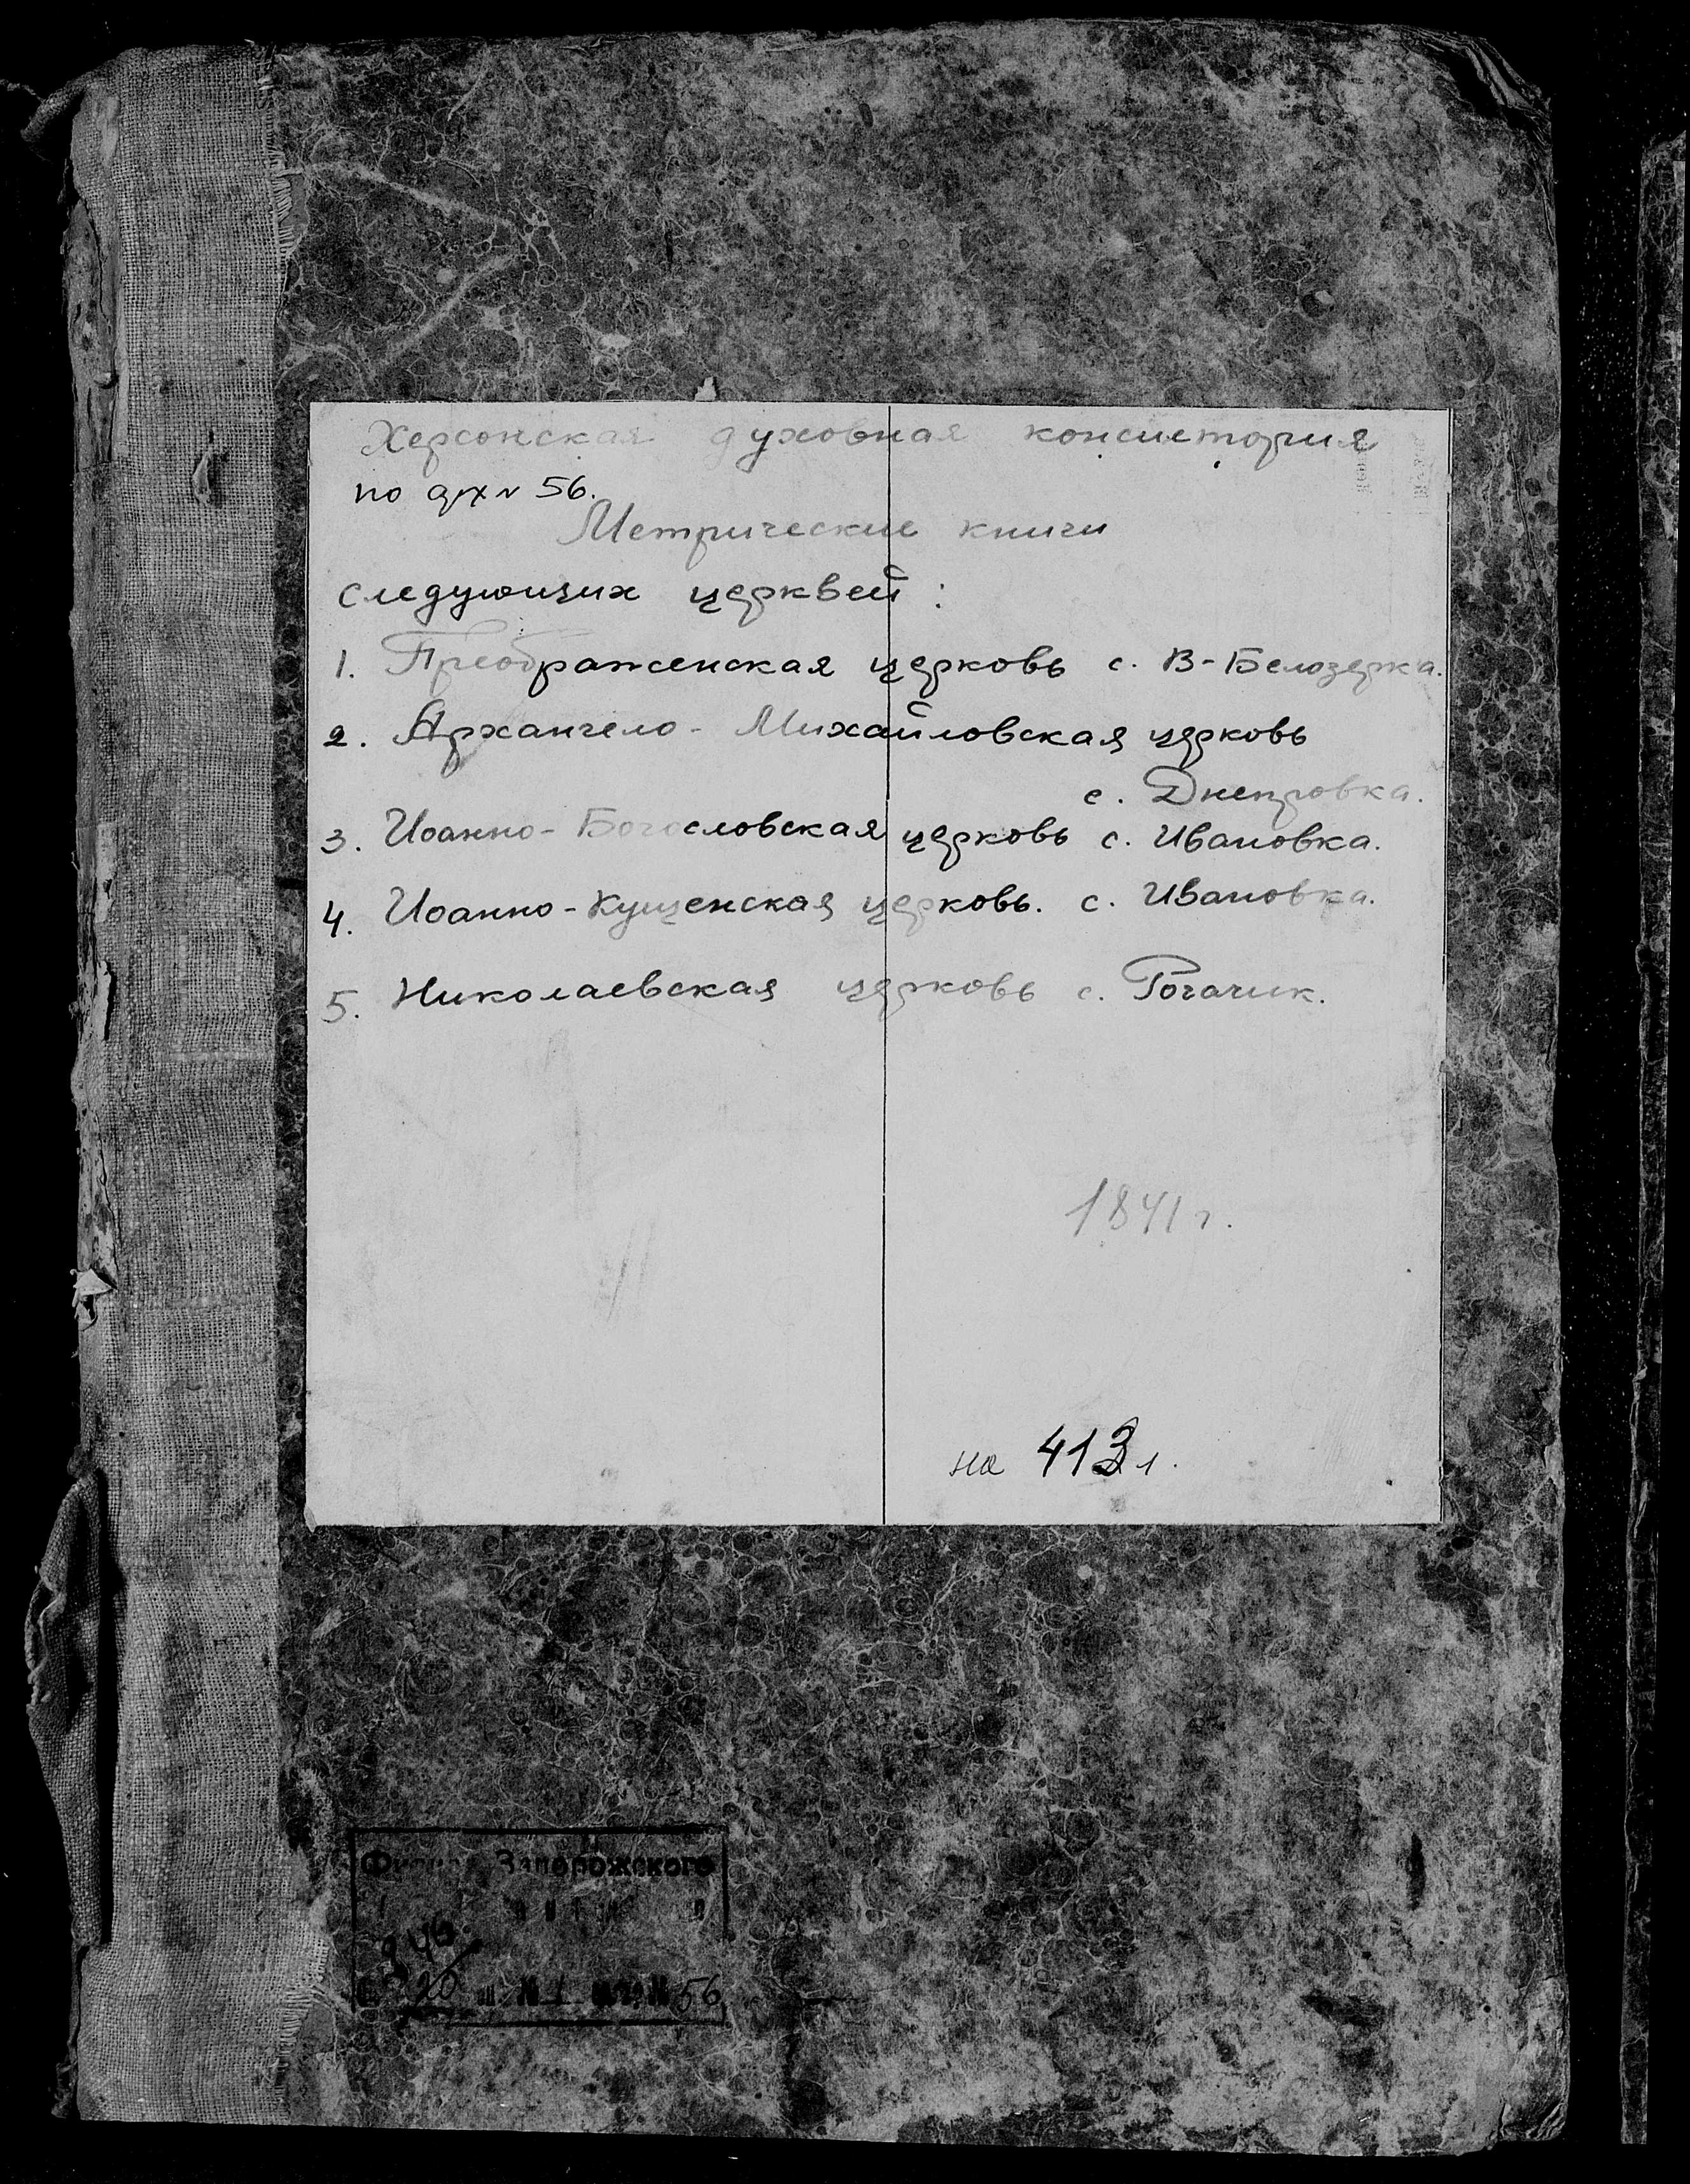 Херсонская духовная консистория
по арх № 56.
Метрические книги
следующих церквей:
1. Преображенская церковь с. В-Белозерка.
2. Архангело-Михайловская церковь
с. Днепровка.
3. Иоанно-Богословская церковь с. Ивановка.
4. Иоанно-Кущенская церковь. с. Ивановка.
5. Николаевская церковь с. Рогачик.
1841 г.
на 413 л.
Запорожского
56